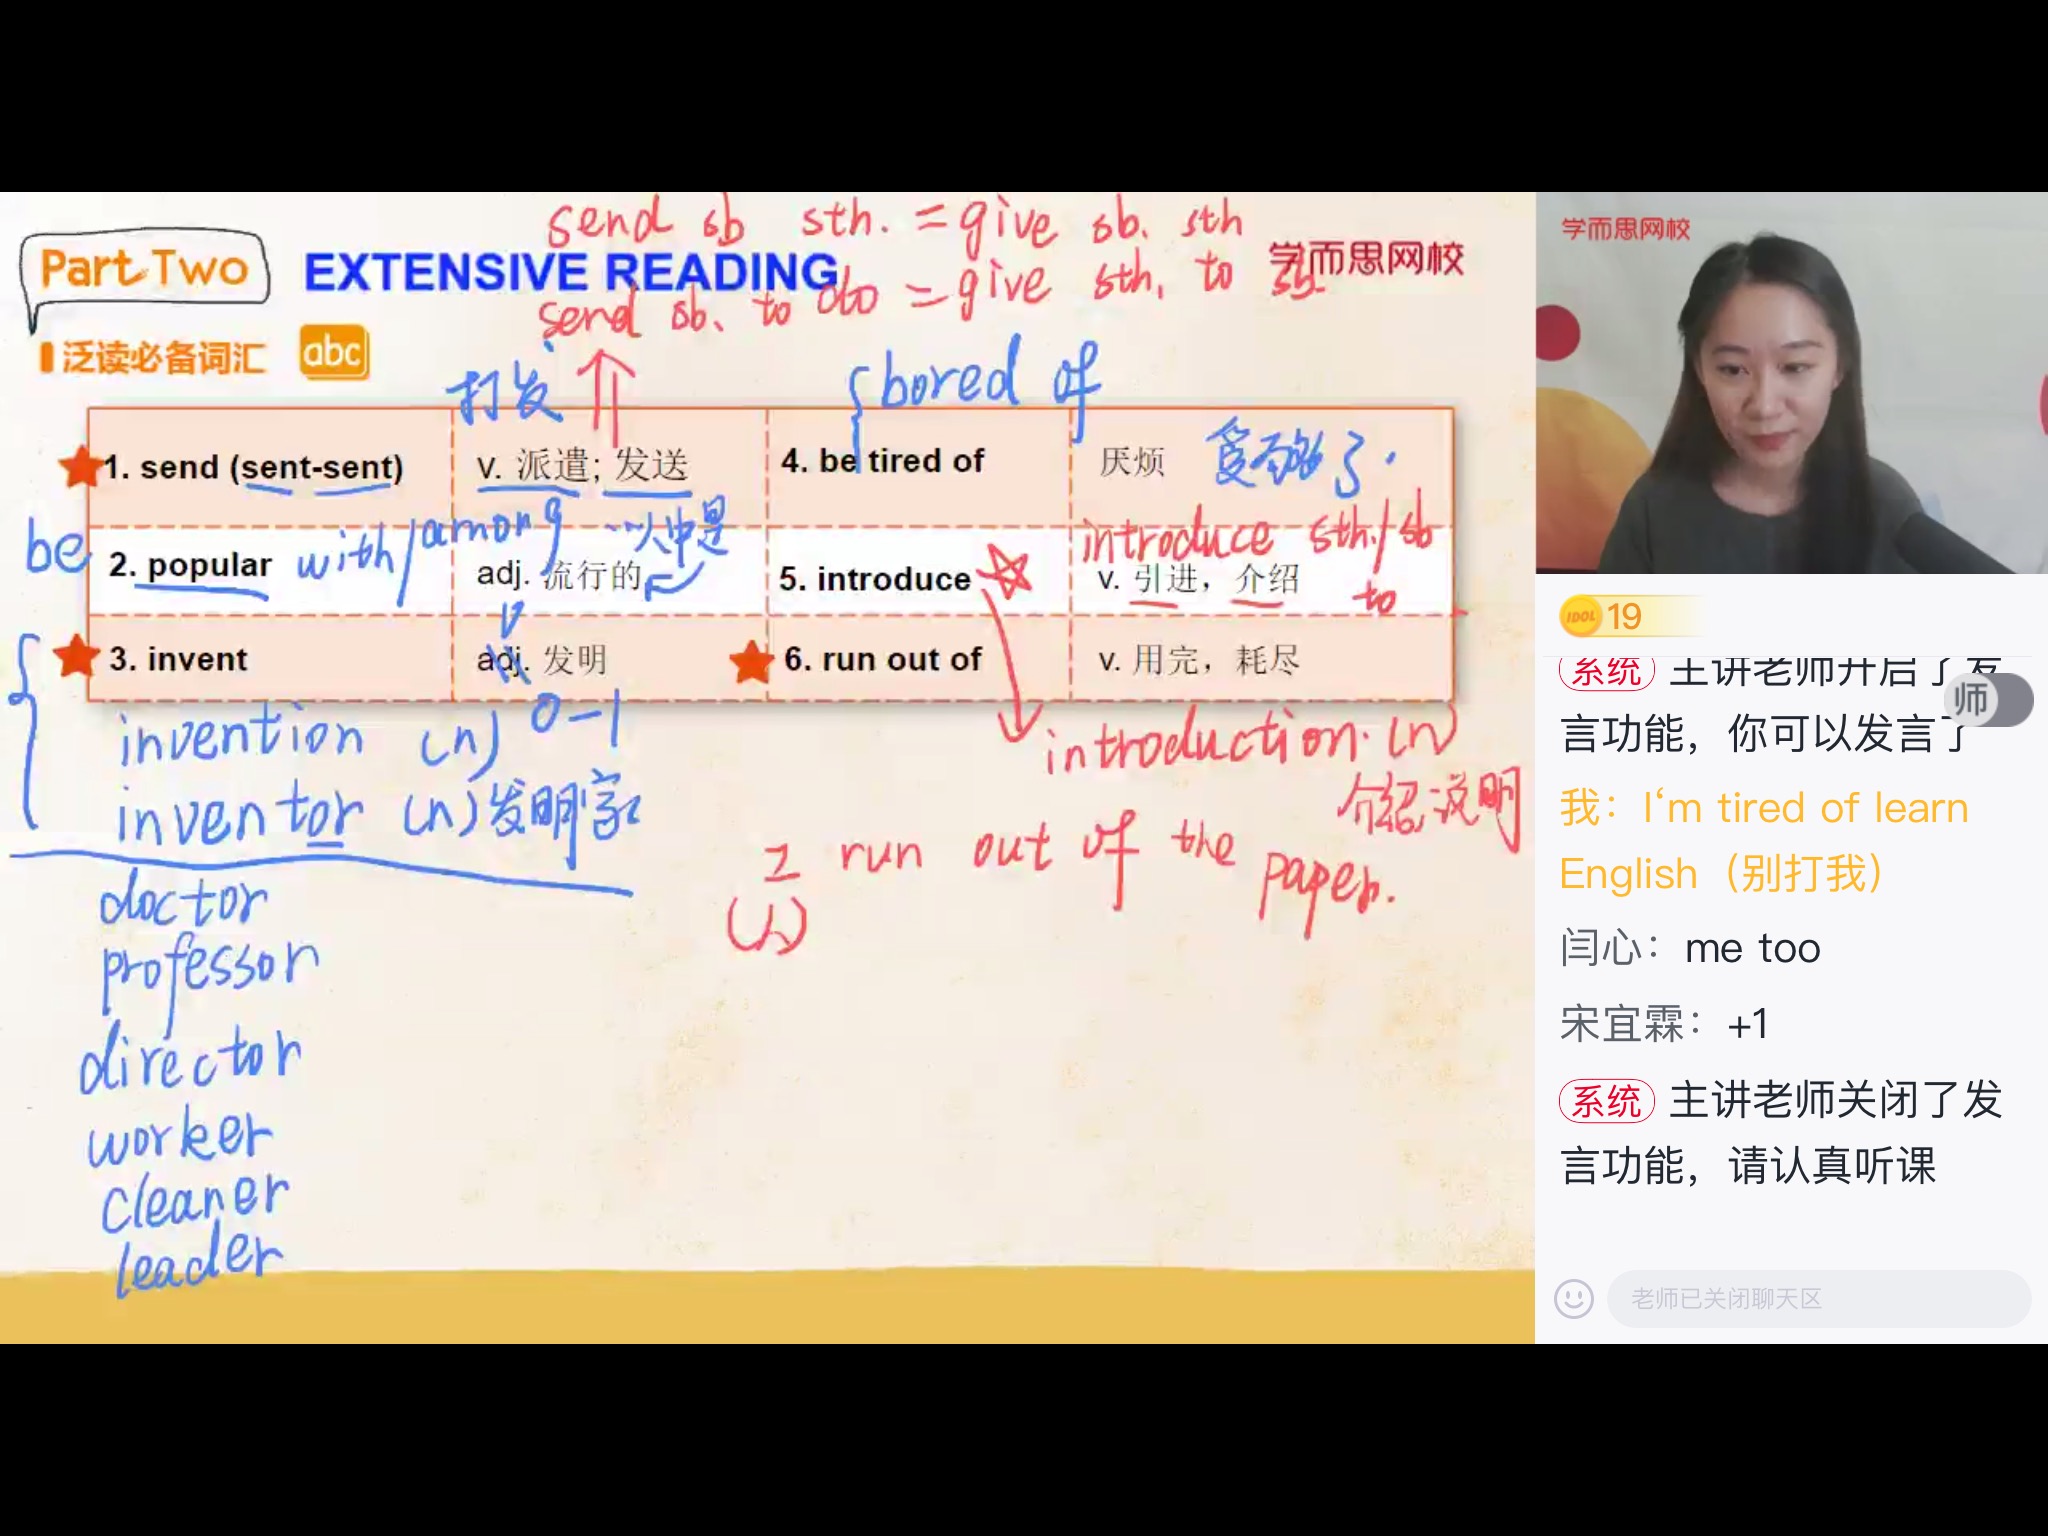 send sb sth. = give sb. sth
Part Two
EXTENSIVE READING
学而思网校
send sb. to do = give sth. to sb.
泛读必备词汇
abc
打发
bored of
1. send (sent-sent)
v. 派遣; 发送
4. be tired of
厌烦
受够了.
be
2. popular
with/among
adj. 流行的
5. introduce
introduce sth./sb
v. 引进，介绍
to
v
3. invent
adj. 发明
6. run out of
v. 用完，耗尽
invention (n) 0-1
introduction. (n)
介绍,说明
inventor (n)发明家
I run out of the paper.
(人)
doctor
professor
director
worker
cleaner
leader
学而思网校
IDOL 19
系统 主讲老师开启了发
师
言功能，你可以发言了
我：I‘m tired of learn
English（别打我）
闫心：me too
宋宜霖：+1
系统 主讲老师关闭了发
言功能，请认真听课
老师已关闭聊天区